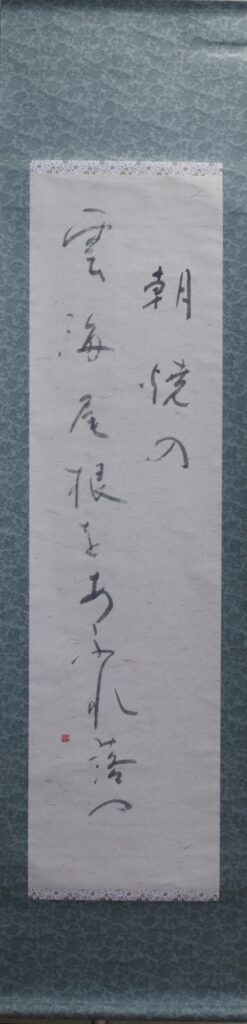 朝焼の
雲海尾根をあふれ落つ